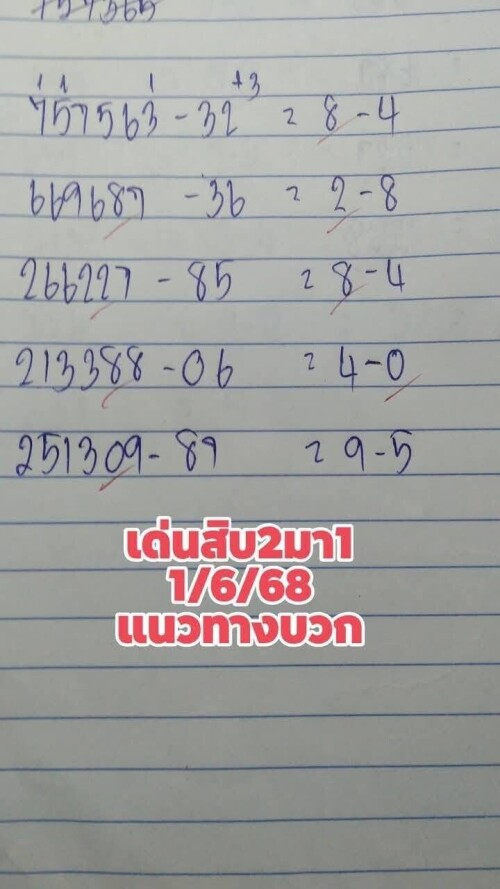 1 1 1 +3
757563 - 32 = 8 - 4
669687 - 36 = 2 - 8
266227 - 85 = 8 - 4
213388 - 06 = 4 - 0
251309 - 89 = 9 - 5
เด่นสิบ2มา1
1/6/68
แนวทางบวก